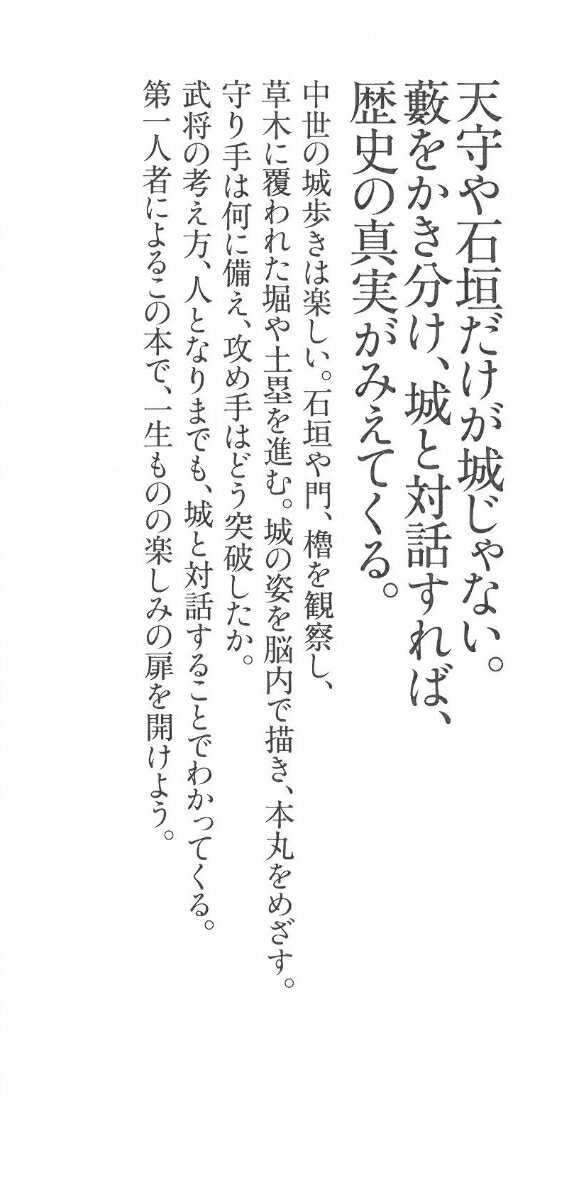 天守や石垣だけが城じゃない。
藪をかき分け、城と対話すれば、
歴史の真実がみえてくる。
中世の城歩きは楽しい。石垣や門、櫓を観察し、
草木に覆われた堀や土塁を進む。城の姿を脳内で描き、本丸をめざす。
守り手は何に備え、攻め手はどう突破したか。
武将の考え方、人となりまでも、城と対話することでわかってくる。
第一人者によるこの本で、一生ものの楽しみの扉を開けよう。